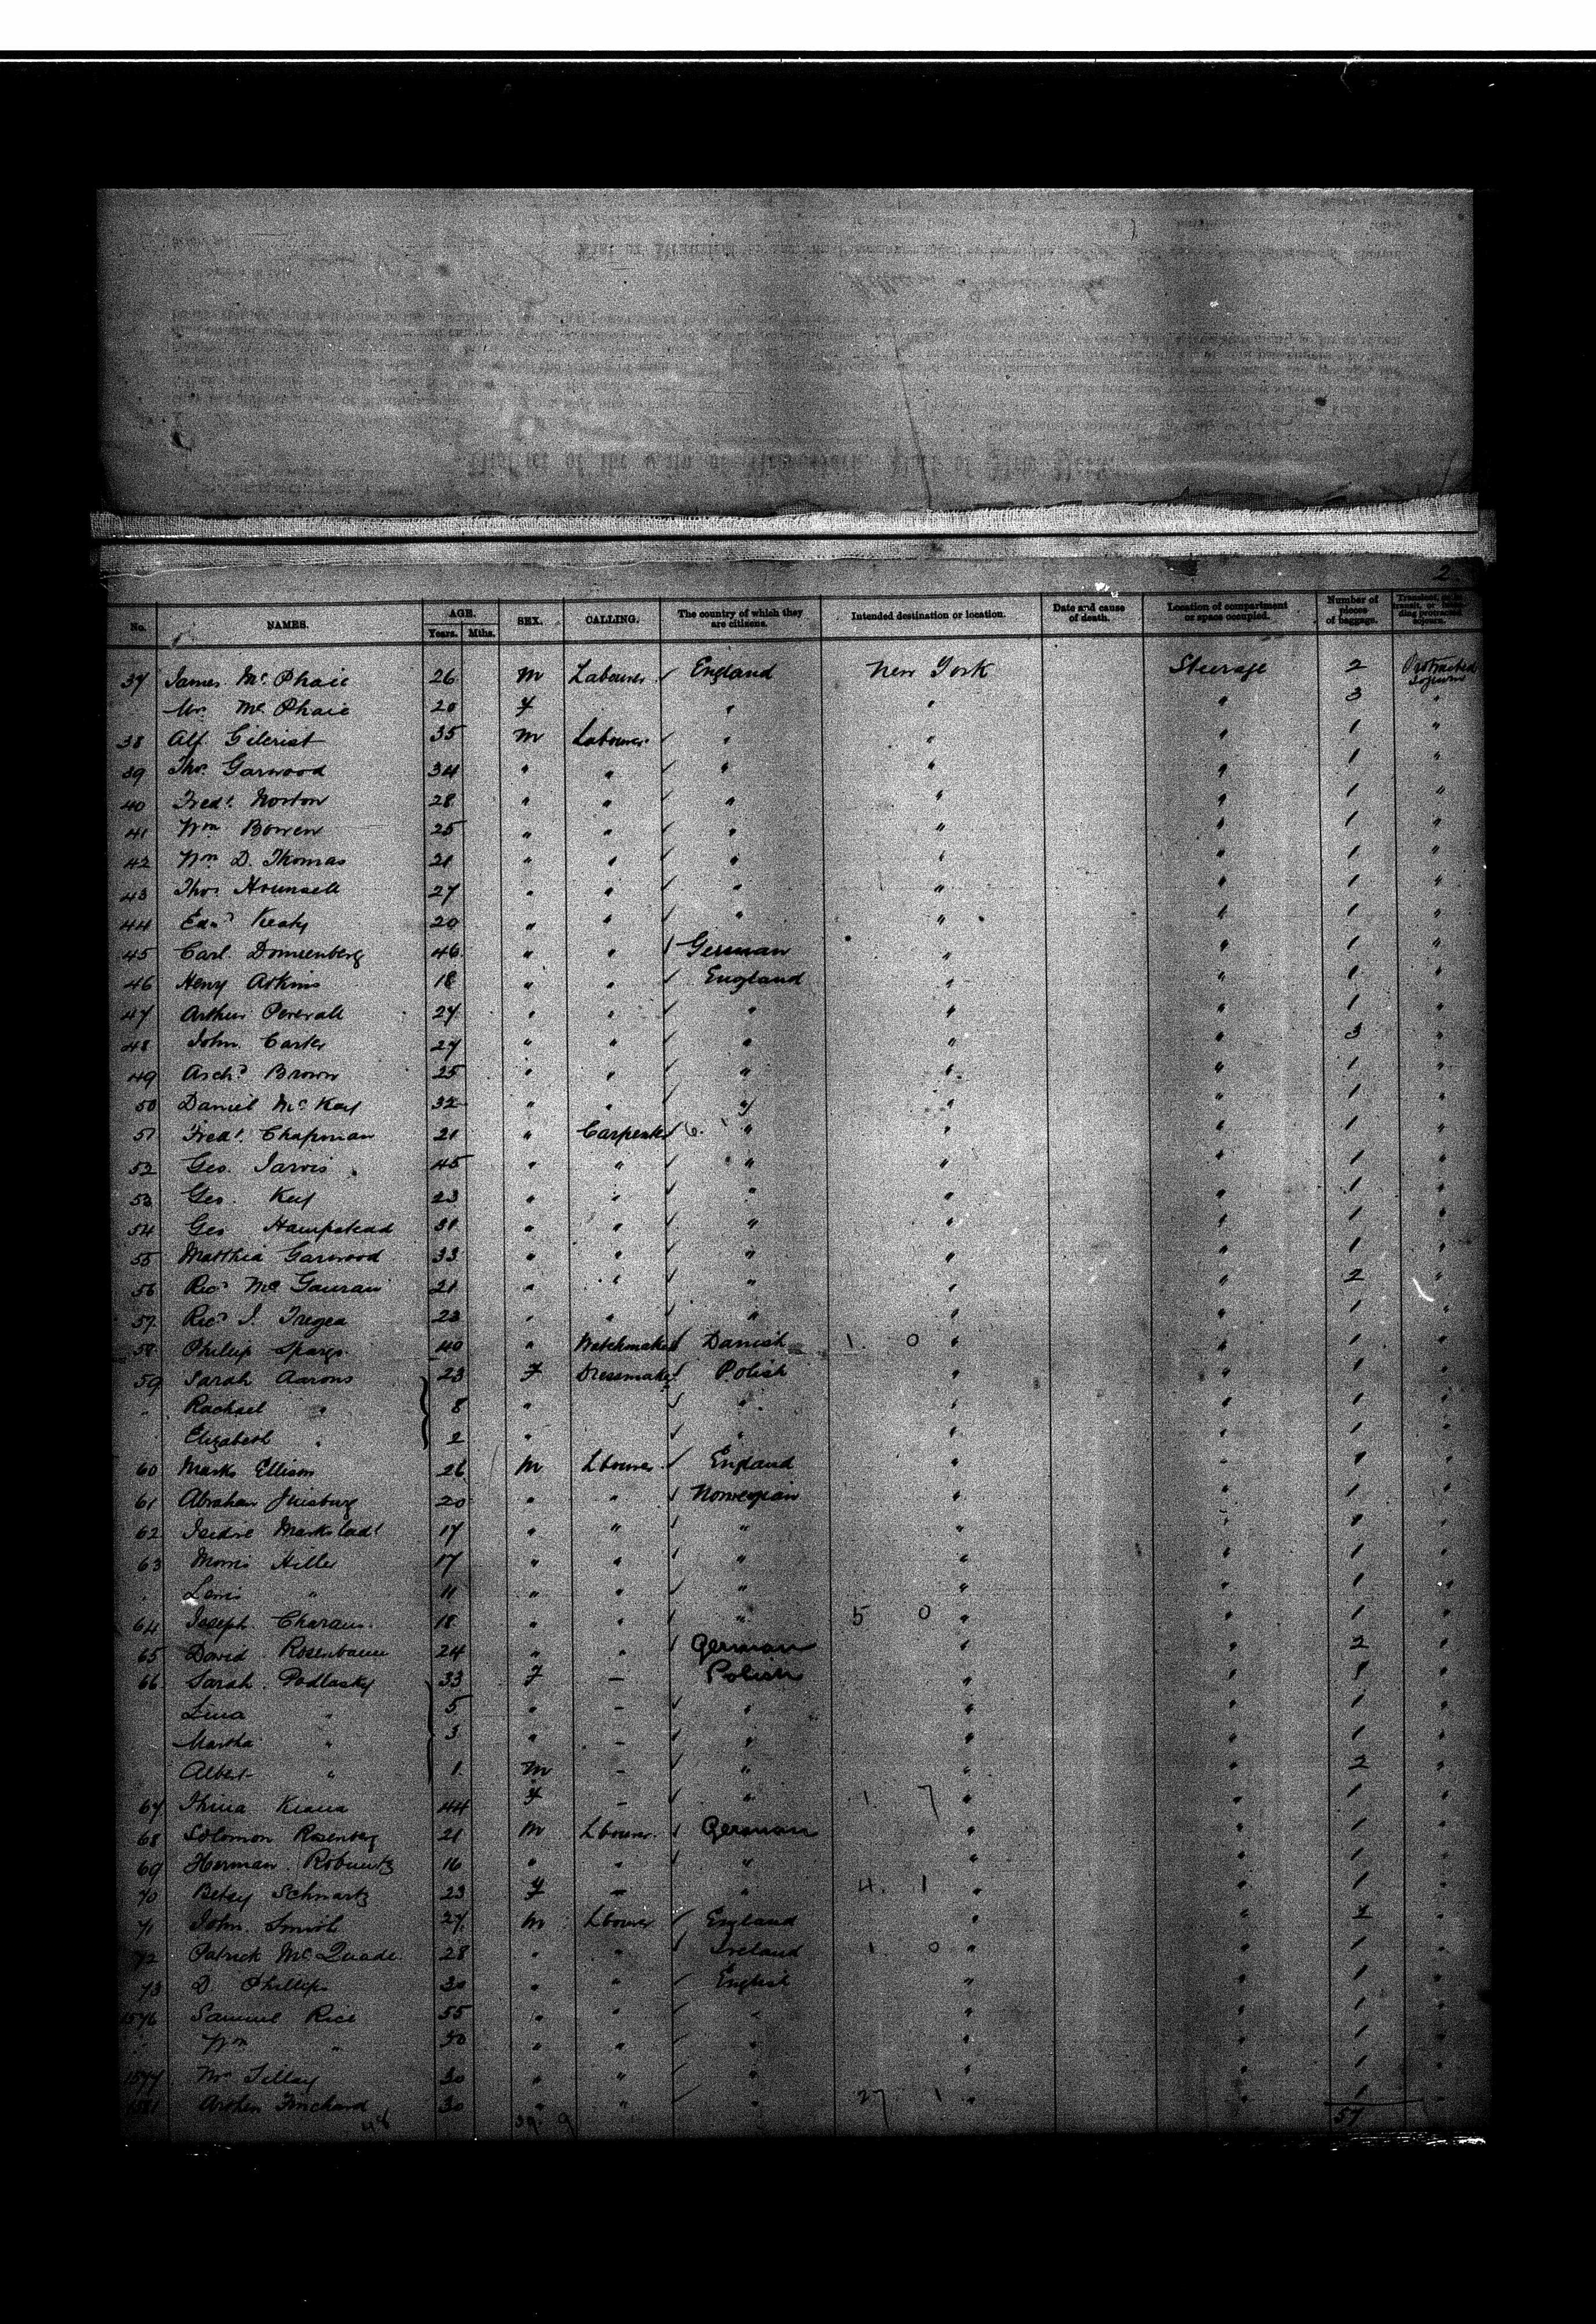 2
No. NAMES. AGE. Years. Mths. SEX. CALLING. The country of which they are citizens. Intended destination or location. Date and cause of death. Location of compartment or space occupied. Number of pieces of baggage. Transient, or in transit, or intending protracted sojourn.
37 James Mc Phaie 26 M Labourer ✓ England New York Steerage 2 Protracted Sojourn
Mrs Mc Phaie 20 F " " " 3 "
38 Alf Gilcrist 35 M Labourer ✓ " " " 1 "
39 Thos Garwood 34 " " ✓ " " " 1 "
40 Fredk Norton 28 " " ✓ " " " 1 "
41 Wm Bowen 25 " " ✓ " " " 1 "
42 Wm D. Thomas 21 " " ✓ " " " 1 "
43 Thos Hounsell 27 " " ✓ " " " 1 "
44 Edwd Keaty 20 " " ✓ " " " 1 "
45 Carl 46 " " ✓ German " " 1 "
46 Heny Atkins 18 " " ✓ England " " 1 "
47 Arthur Percvall 27 " " ✓ " " " 1 "
48 John Carter 27 " " ✓ " " " 3 "
49 Archd Brown 25 " " ✓ " " " 1 "
50 Daniel Mc Kay 32 " " ✓ " " " 1 "
51 Fredk Chapman 21 " Carpenter ✓ " " " 1 "
52 Geo. Jarvis 45 " " ✓ " " " 1 "
53 Geo. Key 23 " " ✓ " " " 1 "
54 Geo Hampstead 31 " " ✓ " " " 1 "
55 Matthia Garwood 33 " " ✓ " " " 1 "
56 Ricd Mc Gauran 21 " " ✓ " " " 2 "
57 Ricd J. Tregea 23 " " ✓ " " " 1 "
58 Philip Spargo 40 " Watchmaker ✓ Danish 1 0 " " 1 "
59 Sarah Aarons 23 F Dressmaker ✓ Polish " " 1 "
" Rachael " 8 " ✓ " " " 1 "
Elizabeth " 2 " ✓ " " " 1 "
60 Marks Ellison 26 M Lbourer ✓ England " " 1 "
61 Abraham 20 " " ✓ Norwegian " " 1 "
62 Isidre 17 " " ✓ " " " 1 "
63 Morris Hiller 17 " " ✓ " " " 1 "
Lewis " 11 " " ✓ " " " 1 "
64 Joseph 18 " " ✓ " 5 0 " " 1 "
65 David Rosenbaum 24 " " ✓ German " " 2 "
66 Sarah Podlasky 33 F – Polish " " 1 "
Lina " 5 " – ✓ " " " 1 "
Martha " 3 " – ✓ " " " 1 "
Albert " 1 M – ✓ " " " 2 "
67 44 F – " 1 7 " " 1 "
68 Solomon Rosenberg 21 M Lbourer ✓ German " " 1 "
69 Herman 16 " " ✓ " " " 1 "
70 Betsy Schwartz 23 F – " 4 1 " " 1 "
71 John Smith 27 M Lbourer ✓ England " "
72 Patrick Mc Quade 28 " " ✓ Ireland 1 0 " " 1 "
73 D. Phillips 30 " " ✓ English " " 1 "
1576 Samuel Rice 55 " " ✓ " " " 1 "
Wm " " " ✓ " " " 1 "
1577 30 " " ✓ " " " 1 "
Arthur 30 " " ✓ " 27 1 " " 1 "
39 9 57